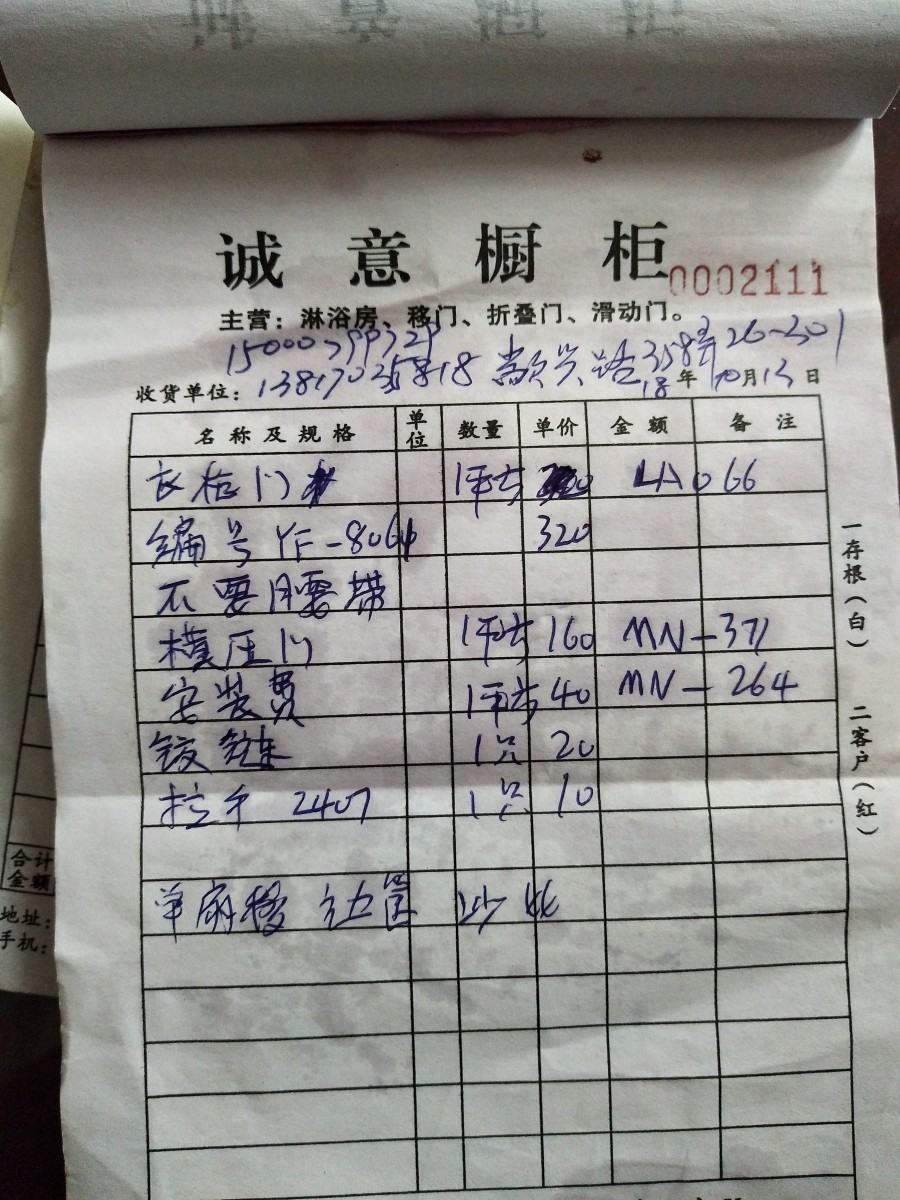 诚意橱柜
0002111
主营：淋浴房、移门、折叠门、滑动门。
收货单位：13817035818 路358弄26-301
18年10月13日
名称及规格 单位 数量 单价 金额 备注
衣柜门 1平方 LA066
编号YF-8061 320
不要腰带
模压门 1平方 160 MN-371
安装费 1平方 40 MN-264
铰链 1只 20
拉手 2407 1只 10
单扇移 边
一存根（白） 二客户（红）
合计金额
地址：
手机：